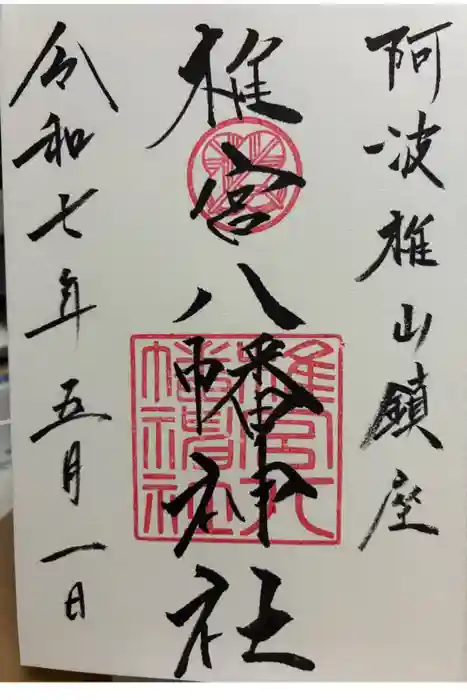 阿波椎山鎮座
椎宮八幡神社
令和七年五月一日
椎宮八幡神社